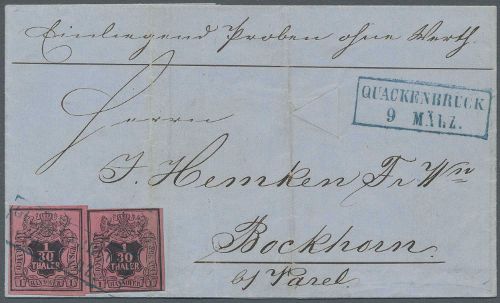 Einliegend Proben ohne Werth.
QUACKENBRÜCK
9 MÄRZ.
Herrn
J. Hemken Fr Wn
Bockhorn.
b/ Varel.
1
30
THALER
HANNOVER
1
30
THALER
HANNOVER